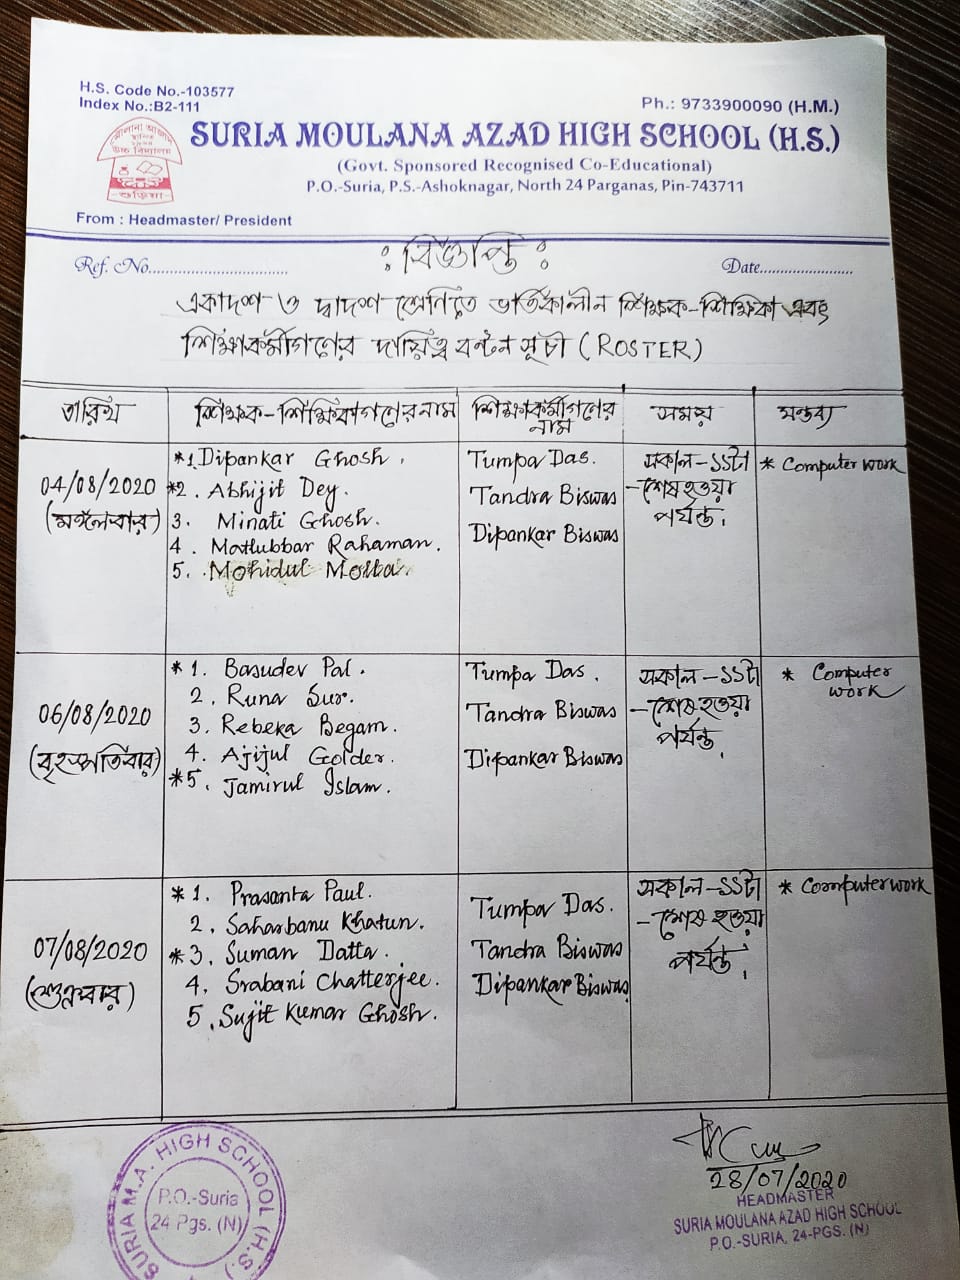 H.S. Code No.-103577
Index No.:B2-111
Ph.: 9733900090 (H.M.)
মৌলানা আজাদ
উচ্চ বিদ্যালয়
শুড়িয়া
SURIA MOULANA AZAD HIGH SCHOOL (H.S.)
(Govt. Sponsored Recognised Co-Educational)
P.O.-Suria, P.S.-Ashoknagar, North 24 Parganas, Pin-743711
From : Headmaster/ President
: বিজ্ঞপ্তি :
Ref. No.
Date
একাদশ ও দ্বাদশ শ্রেণিতে ভর্তিকালীন শিক্ষক-শিক্ষিকা এবং
শিক্ষাকর্মীগণের দায়িত্ব বন্টন সূচী (ROSTER)
তারিখ
শিক্ষক-শিক্ষিকাগণের নাম
শিক্ষাকর্মীগণের
নাম
সময়
মন্তব্য
04/08/2020
(মঙ্গলবার)
*1. Dipankar Ghosh.
*2. Abhijit Dey.
3. Minati Ghosh.
4. Matlubbar Rahaman.
5. Mohidul Molla.
Tumpa Das.
Tandra Biswas
Dipankar Biswas
সকাল-১১টা
-শেষ হওয়া
পর্যন্ত.
* Computer work
06/08/2020
(বৃহস্পতিবার)
*1. Basudev Pal.
2. Runa Sur.
3. Rebeka Begam.
4. Ajijul Golder.
*5. Jamirul Islam.
Tumpa Das.
Tandra Biswas
Dipankar Biswas
সকাল-১১টা
-শেষ হওয়া
পর্যন্ত.
* Computer
work
07/08/2020
(শুক্রবার)
*1. Prasanta Paul.
2. Saharbanu Khatun.
*3. Suman Datta.
4. Srabani Chatterjee.
5. Sujit Kumar Ghosh.
Tumpa Das.
Tandra Biswas
Dipankar Biswas
সকাল-১১টা
-শেষ হওয়া
পর্যন্ত.
* Computer work
SURIA M.A. HIGH SCHOOL (H.S.)
P.O.-Suria
24 Pgs. (N)
28/07/2020
HEADMASTER
SURIA MOULANA AZAD HIGH SCHOOL
P.O.-SURIA, 24-PGS. (N)